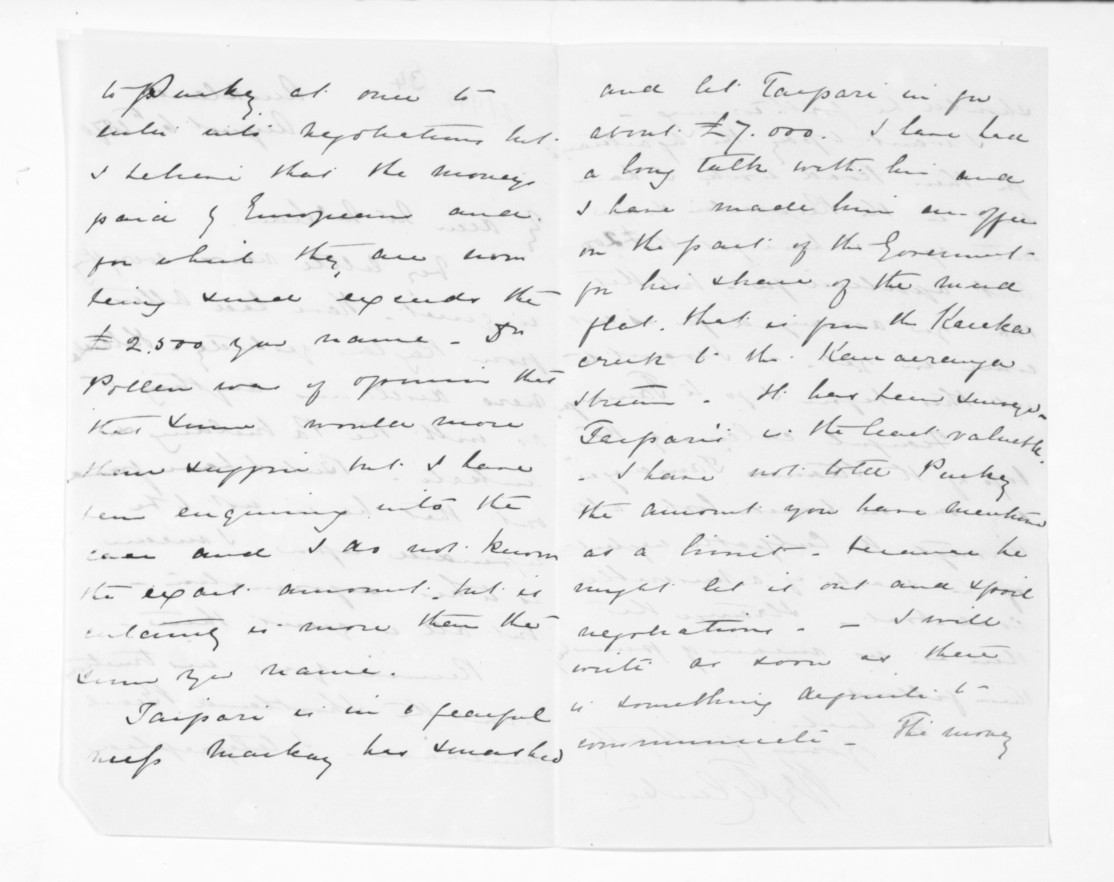 to Puckey at once to
enter into negotiations but
I believe that the moneys
paid by Europeans and
for which they are now
being sued exceeds the
£2,500 you name - Dr
Pollen was of opinion that
that sum would more
than suffice but I have
been enquiring into the
case and I do not know
the exact amount, but it
certainly is more than the
sum you name.
Taipari is in a fearful
mess Mackay has smashed
and let Taipari in for
about £7.000. I have had
a long talk with him and
I have made him an offer
on the part of the Government
for his share of the mud
flat, that is from the Karaka
creek to the Kauaeranga
stream - It has been surveyed
Taipari's is the least valuable.
- I have not told Puckey
the amount you have mentioned
as a limit - because he
might let it out and spoil
negotiations. - I will
write as soon as there
is something definite to
communicate - The money